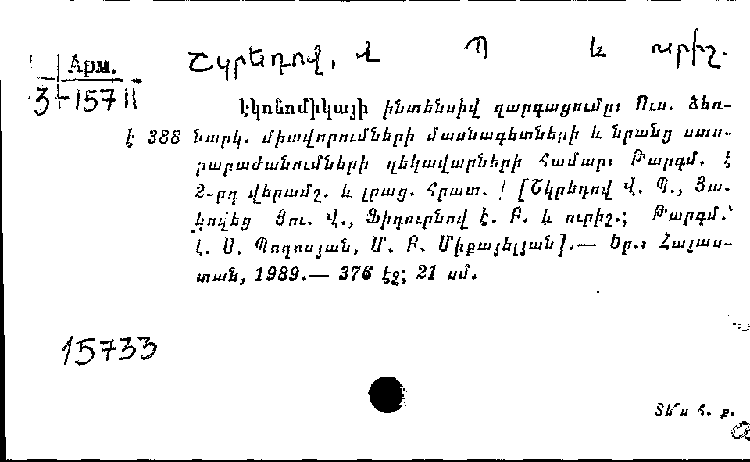 Շկրեդով, Վ Պ և ուրիշ.
Арм.
3-15711
Էկոնոմիկայի ինտենսիվ զարգացումը: Ուս. ձեռ-
է 388 նարկ. միավորումների մասնագետների և նրանց ստո-
րաբաժանումների ղեկավարների համար: Թարգմ. է
2-րդ վերամշ. և լրաց. հրատ. / [Շկրեդով Վ. Պ., Յա-
կովեց Յու. Վ., Ֆիգուրնով Է. Բ. և ուրիշ.; Թարգմ.՝
Լ. Ս. Պողոսյան, Մ. Բ. Միքայելյան].— Եր.: Հայաս-
տան, 1989.— 376 էջ; 21 սմ.
15733
Տե՛ս հ. ք.